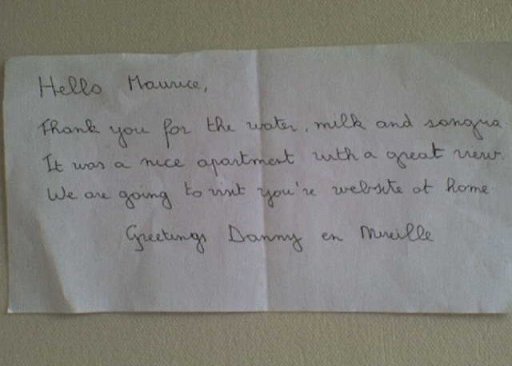 Hello Maurice,
Thank you for the water, milk and sangria
It was a nice apartment with a great view
We are going to visit you're website at home
Greetings Danny en Mireille